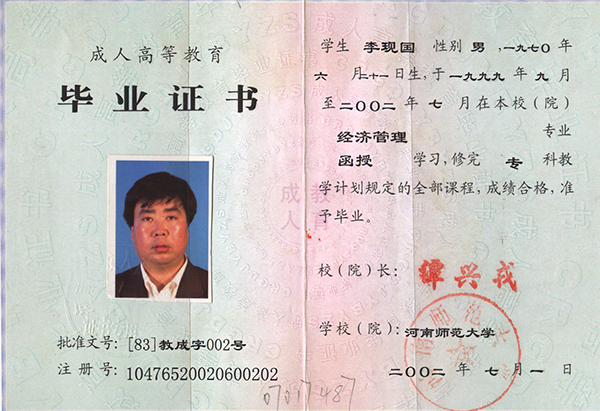 成人高等教育
毕业证书
批准文号：[83]教成字002号
注册号：10476520020600202
学生 李现国 性别 男，一九七〇年
六月二十一日生，于一九九九年九月
至二〇〇二年七月在本校（院）
经济管理 专业
函授 学习，修完 专 科教
学计划规定的全部课程，成绩合格，准
予毕业。
校（院）长：
学校（院）：河南师范大学
二〇〇二年七月一日
成教
人育
07017487